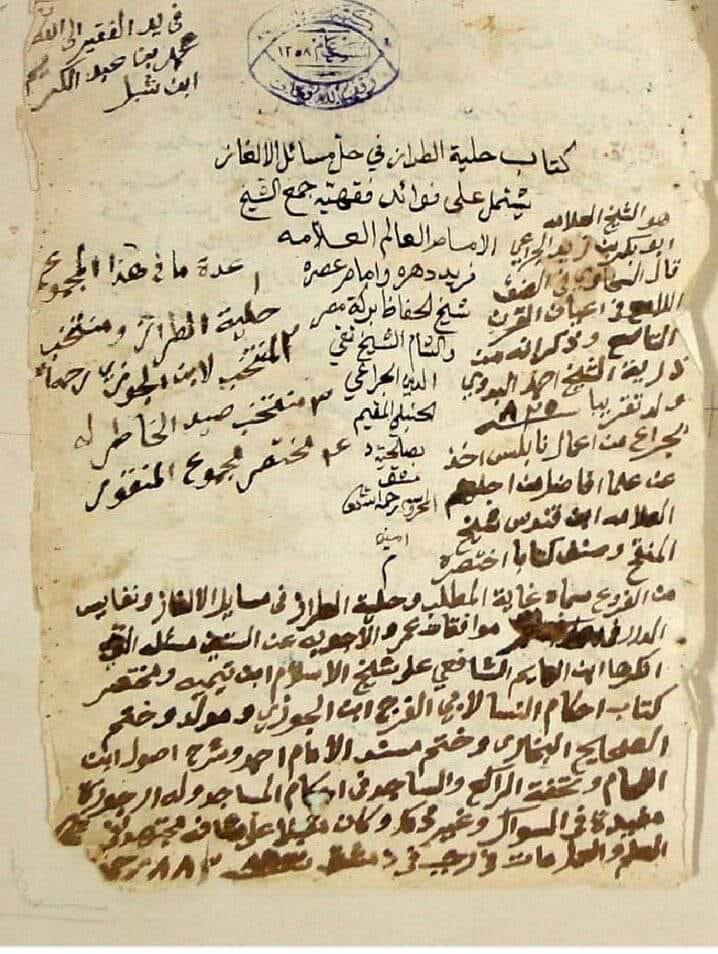 في يد الفقير الى الله
محمد بن عبد الكريم
ابن شبل
١٣٥٨
كتاب حلية الطراز في حل مسائل الالغاز
يشتمل على فوائد فقهية جمع الشيخ
الامام العالم العلامه
فريد دهره وامام عصره
شيخ الحفاظ بركة مصر
والشام الشيخ تقي
الدين الجراعي
الحنبلي المقيم
بصالحية
دمشق
المحروسه رحمه الله
امين
م
عدة ما في هذا المجموع
١
حلية الطراز ومنتخب
٢ المنتخب لابن الجوزي رحمه الله
٣ منتخب صيد الخاطر له
٤ مختصر مجموع المنقور
هو الشيخ العلامه
ابو بكر بن زيد الجراعي
قال السخاوي في الضوء
اللامع في اعيان القرن
التاسع وذكر انه من
ذرية الشيخ احمد البدوي
ولد تقريبا ٨٢٥
بجراع من اعمال نابلس اخذ
عن علما افاضل من اجلهم
العلامه ابن قندس شيخ
المنقح وصنف كتابا اختصره
من الفروع سماه غاية المطلب وحلية الطراز في مسايل الالغاز ونفايس
الدرر في موافقات عمر والاجوبه عن الستين مسئله التي
انكرها ابن الهايم الشافعي على شيخ الاسلام ابن تيميه ومختصر
كتاب احكام النسا لابي الفرج ابن الجوزي ومولد وختم
الصحايح البخاري وختم مسند الامام احمد وشرح اصول ابن
اللحام وتحفة الراكع والساجد في احكام المساجد وله ارجوزة
مفيدة في السواك وغير ذلك وكان مقبلا على شانه
العلم والعبادات رجب في دمشق ٨٨٣